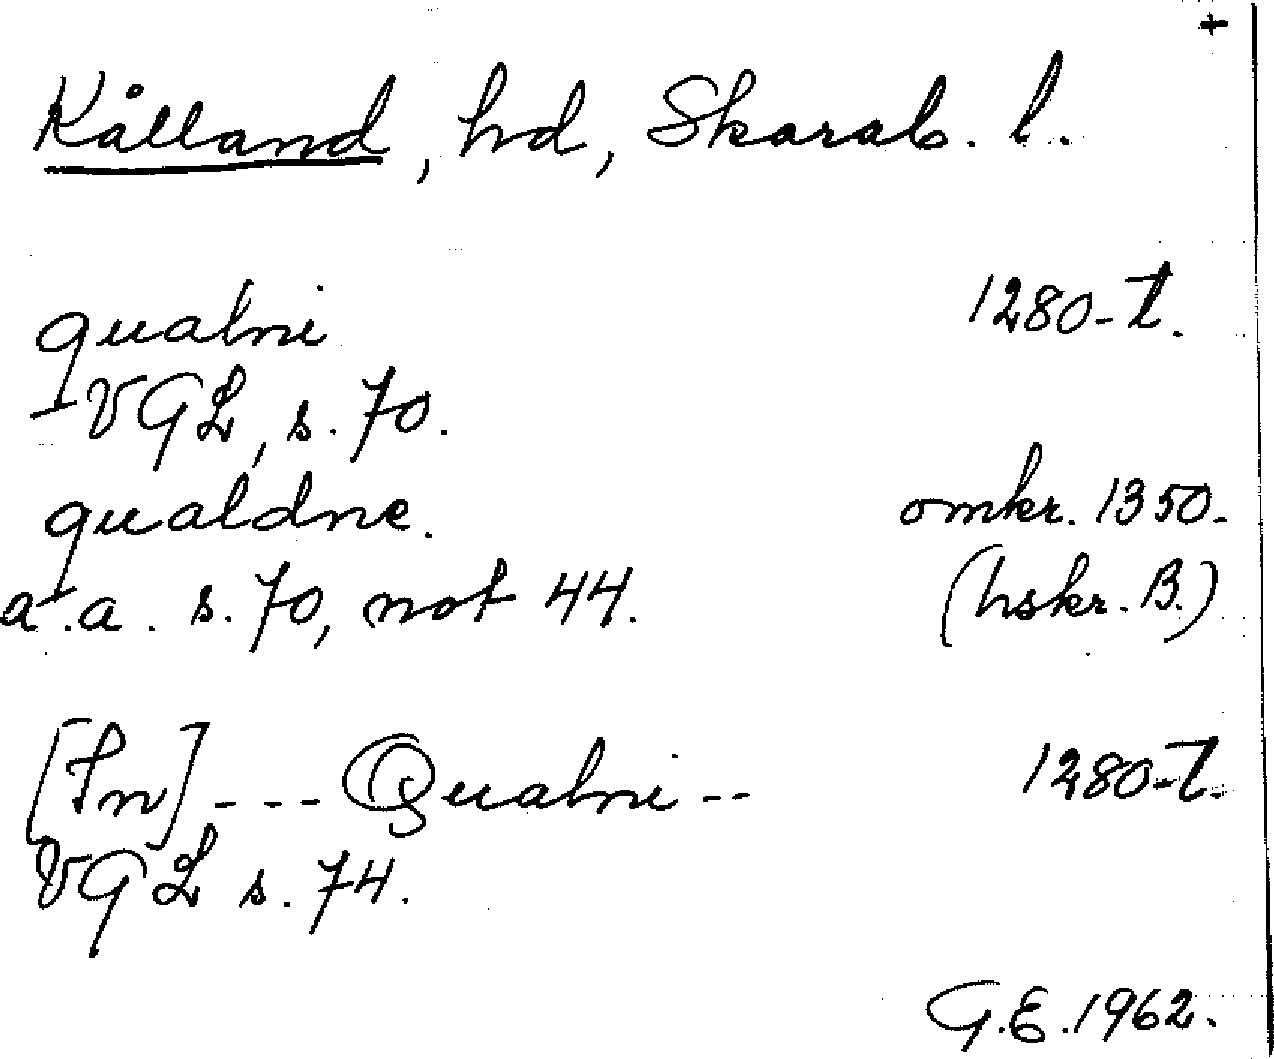 +
Kålland, hd, Skarab. l.
qualni 1280-t.
VGL, s. 70.
qualdne. omkr. 1350.
a.a. s. 70, not 44. (hskr. B.)
[In] --- Qualni -- 1280-t.
VGL s. 74.
G.E. 1962.